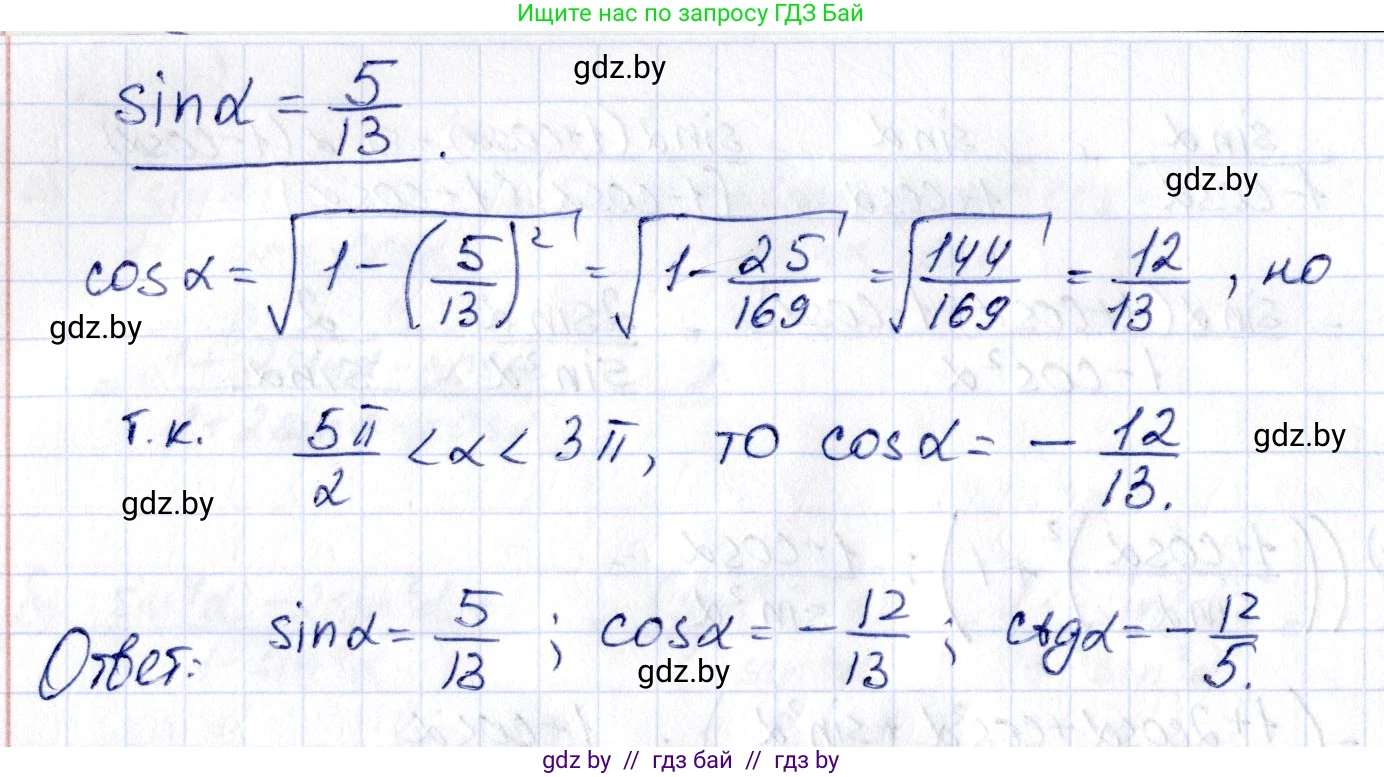 Ищите нас по запросу ГДЗ Бай
gdz.by
sinα = 5/13.
gdz.by
cosα = √(1 - (5/13)²) = √(1 - 25/169) = √(144/169) = 12/13, но
gdz.by
т.к. 5π/2 < α < 3π, то cosα = - 12/13.
gdz.by
gdz.by
Ответ: sinα = 5/13; cosα = - 12/13; ctgα = - 12/5.
gdz.by
gdz.by // гдз бай // гдз by